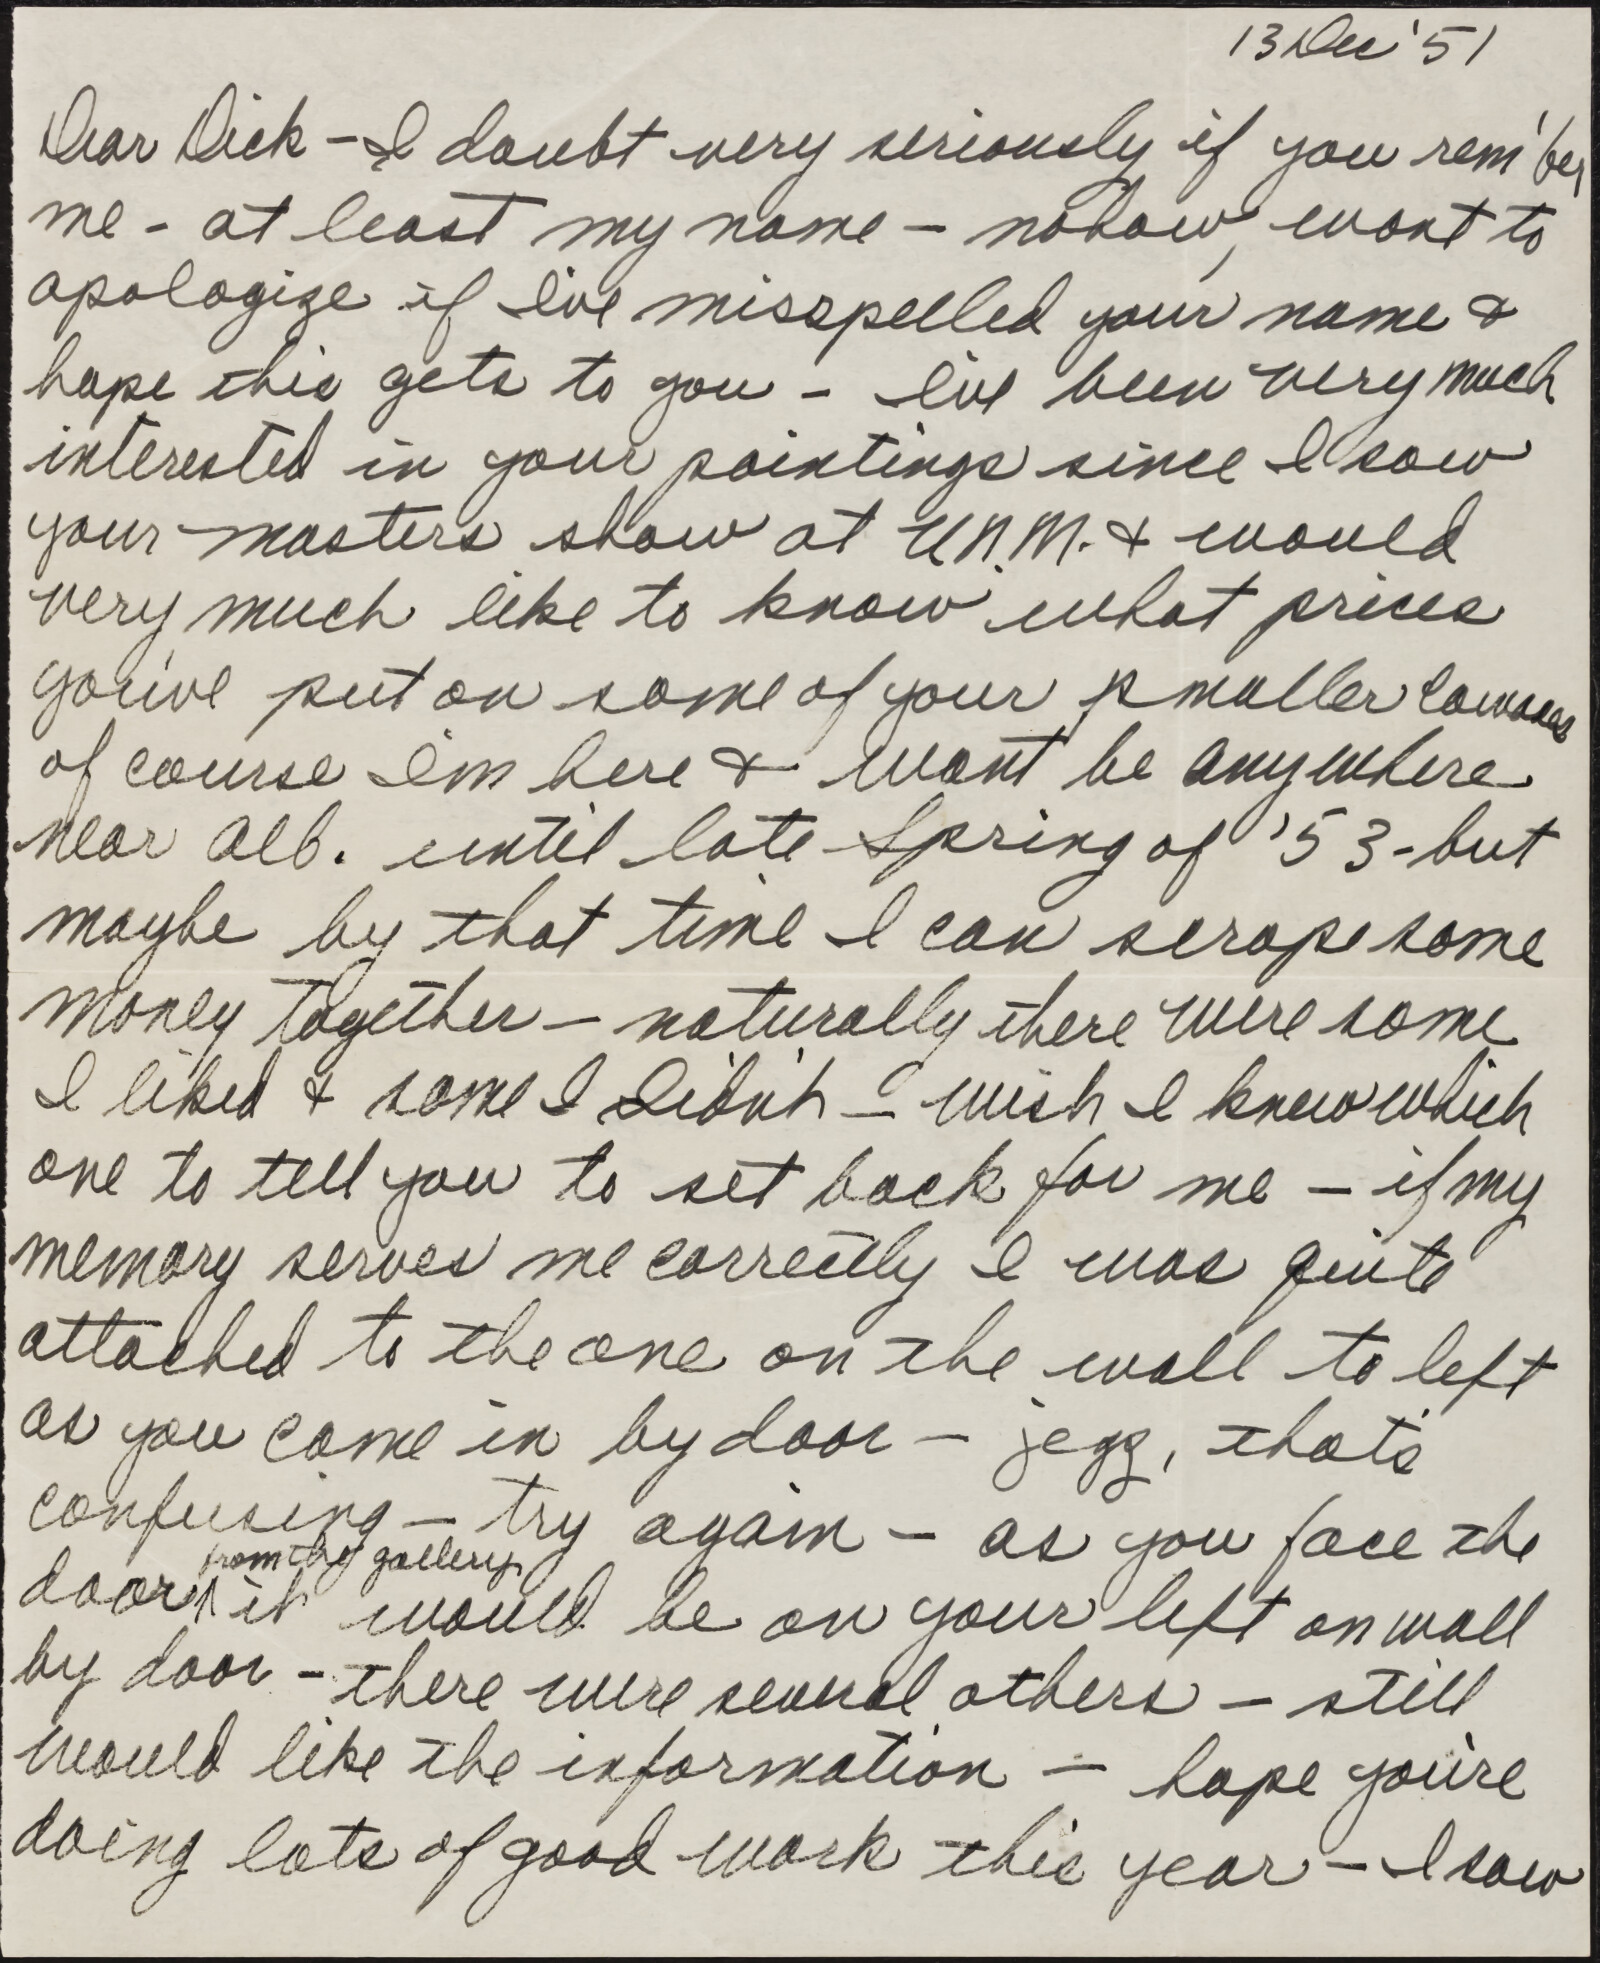 13 Dec '51
Dear Dick - I doubt very seriously if you rem'ber
me - at least my name - nohow, want to
apologize if I've misspelled your name &
hope this gets to you - I've been very much
interested in your paintings since I saw
your masters show at U.N.M. & would
very much like to know what prices
you've put on some of your smaller canvases
of course I'm here & wont be anywhere
near Alb. until late Spring of '53 - but
maybe by that time I can scrape some
money together - naturally there were some
I liked & some I didn't - wish I knew which
one to tell you to set back for me - if my
memory serves me correctly I was quite
attached to the one on the wall to left
as you come in by door - jezz, that's
confusing - try again - as you face the
door from the gallery it would be on your left on wall
by door - there were several others - still
would like the information - hope you're
doing lots of good work this year - I saw